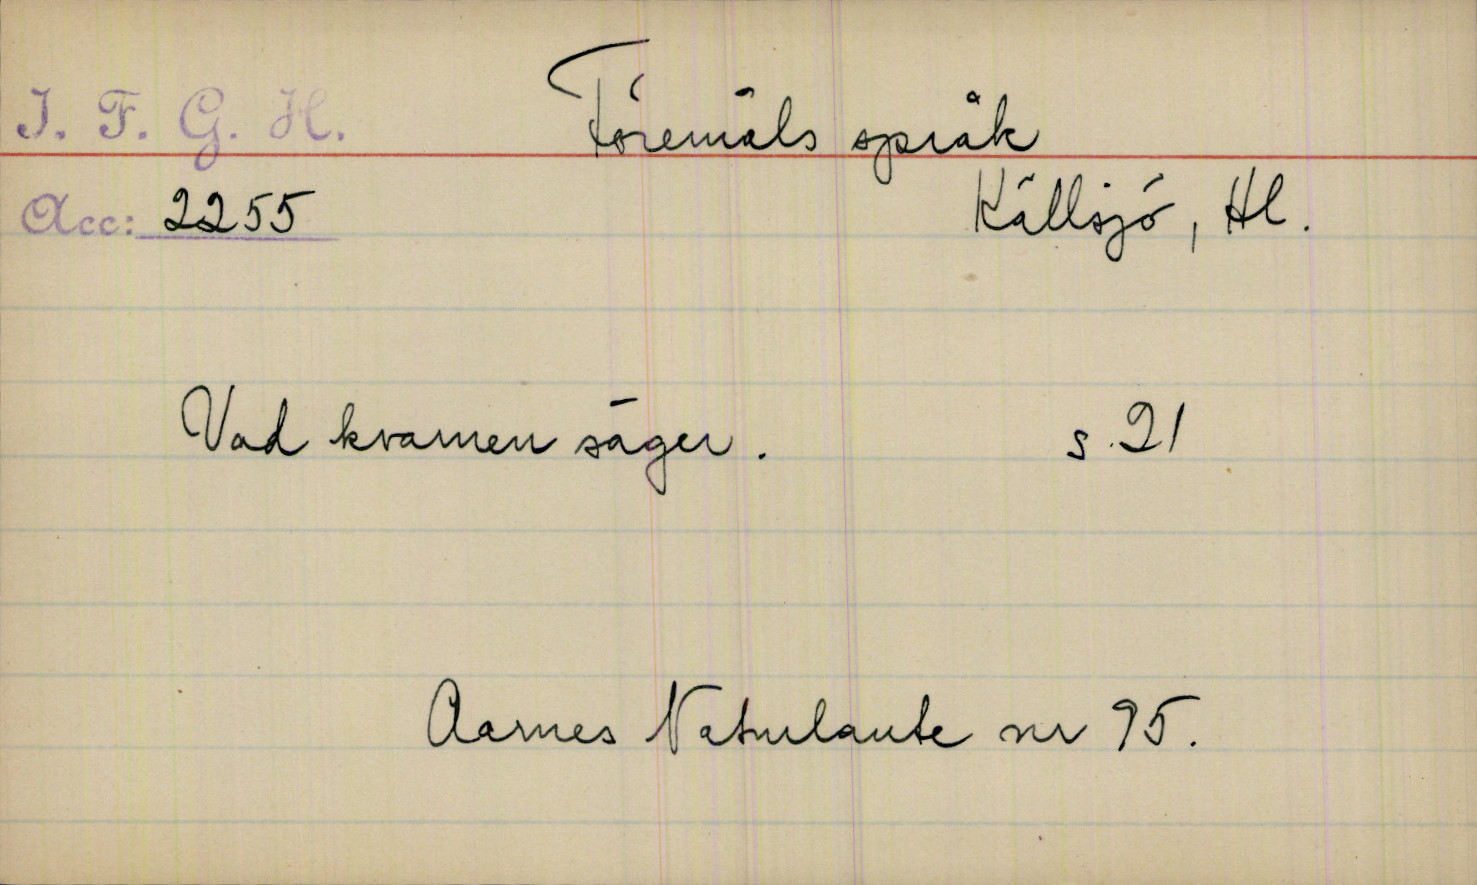 I. F. G. H.
Föremåls språk
Acc: 2255
Källsjö, Hl.
Vad kvarnen säger. s. 21
Aarnes Naturlaute nr 95.